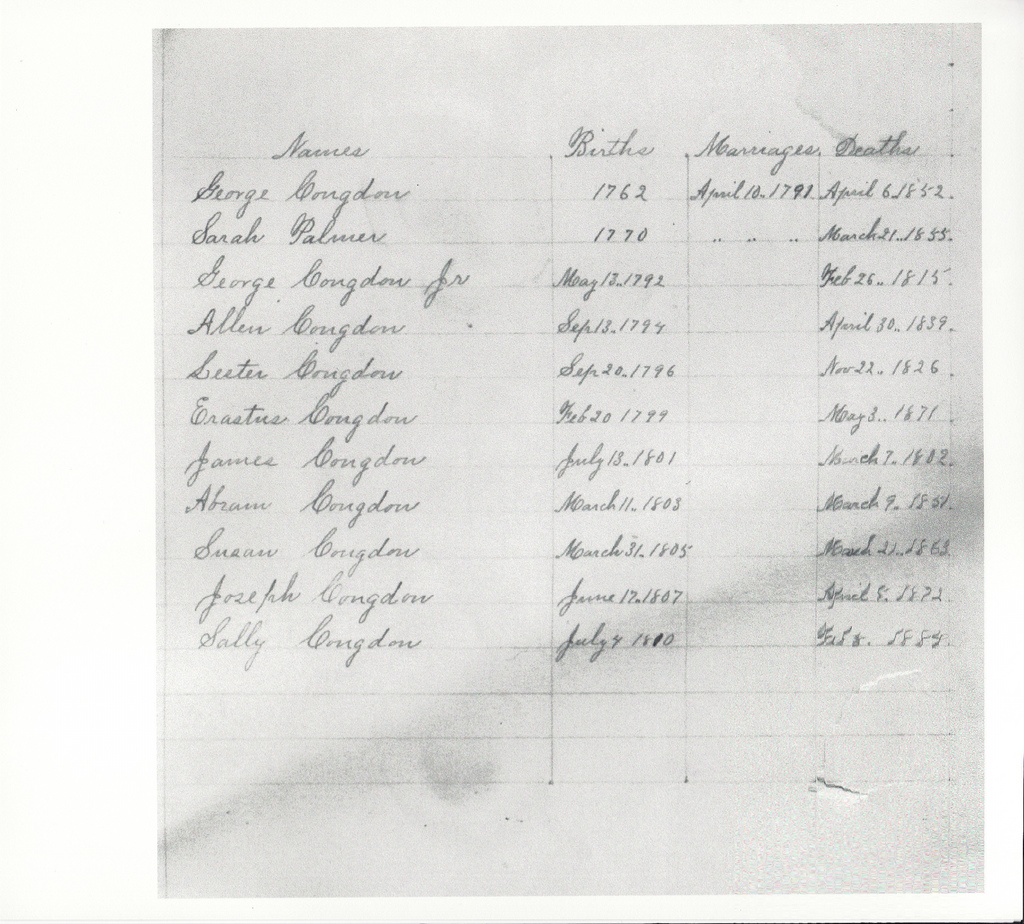 Names Births Marriages. Deaths
George Congdon 1762 April 10..1791 April 6..1852.
Sarah Palmer 1770 " " " March 21..1855.
George Congdon Jr May 13..1792 Feb 26.. 1815.
Allen Congdon Sep 13..1794 April 30..1839.
Lester Congdon Sep 20..1796 Nov 22.. 1826.
Erastus Congdon Feb 20 1799 May 3.. 1871
James Congdon July 13..1801 March 7..1802.
Abram Congdon March 11..1803 March 9..1851.
Susan Congdon March 31..1805 March 21..1863.
Joseph Congdon June 17..1807 April 8..1872
Sally Congdon July 4 1810 Feb 8. 1884.